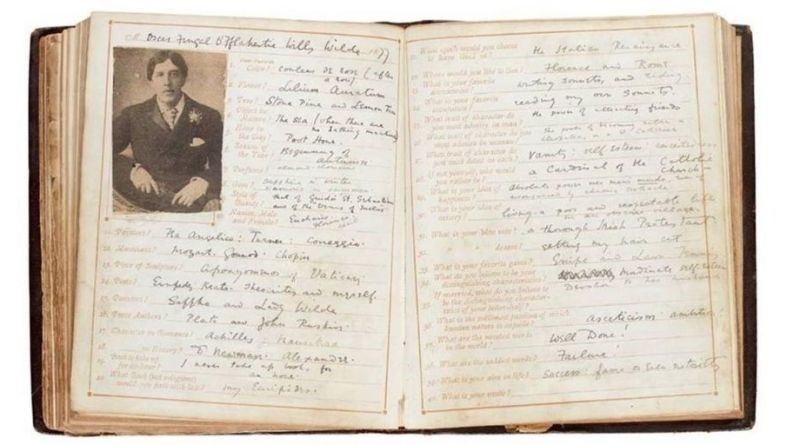 Oscar Fingal O'Fflahertie Wills Wilde 1877
1. Color? couleur de rose (after
a rose)
2. Flower? Lilium Auratum
3. Tree? Stone Pine and Lemon Tree
Nature? The Sea (when there are
no bathing machines)
Hour in
the Day? Post Hour.
Season of
the Year? Beginning of
Autumn
Perfume? almond blossom
Gem? Sapphire in winter
Diamond in summer
Beauty? that of Guido's St. Sebastian
and of the Venus of
Names, Male
and Female? Euchari
Florence
11. Painters? Fra Angelico: Turner: Correggio.
12. Musicians? Mozart. Gounod. Chopin
13. Piece of Sculpture? Apoxyomenos of Vatican
14. Poets? Euripides Keats Theocritus and myself
15. Poetesses? Sappho and Lady Wilde
16. Prose Authors? Plato and John Ruskin
17. Character in Romance? Achilles
18. in History? Newman: Alexander.
19. Book to take up
for an hour? I never take up books for
an hour.
20. What Book (not religious)
would you part with last? my Euripides.
21. What epoch would you choose
to have lived in? the Italian Renaissance
22. Where would you like to live? Florence and Rome
23. What is your favorite
amusement? writing sonnets, and riding.
24. What is your favorite
occupation? reading my own sonnets.
25. What trait of character do
you most admire in man? the power of attracting friends
26. What trait of character do you
most admire in woman? the power of becoming either a
Cleopatra or a St Catherine
27. What trait of character do
you most detest in each? Vanity: self esteem: conceitedness
28. If not yourself, who would
you rather be? a Cardinal of the Catholic
Church
29. What is your idea of
happiness? absolute power over men's minds, even
30. What is your idea of
misery? living a poor and respectable life
in an obscure village.
31. What is your bête noire? a thorough Irish Protestant
32. dream? getting my hair cut
33. What is your favorite game? Snipe and Lawn Tennis
34. What do you believe to be your
distinguishing characteristics? inordinate self esteem
35. If married, what do you believe to
be the distinguishing character-
istics of your better-half? Devotion to her husband
36. What is the sublimest passion of which
human nature is capable? Asceticism: ambition:
37. What are the sweetest words
in the world? Well Done!
38. What are the saddest words? Failure!
39. What is your aim in life? Success: fame or even notoriety
40. What is your motto?